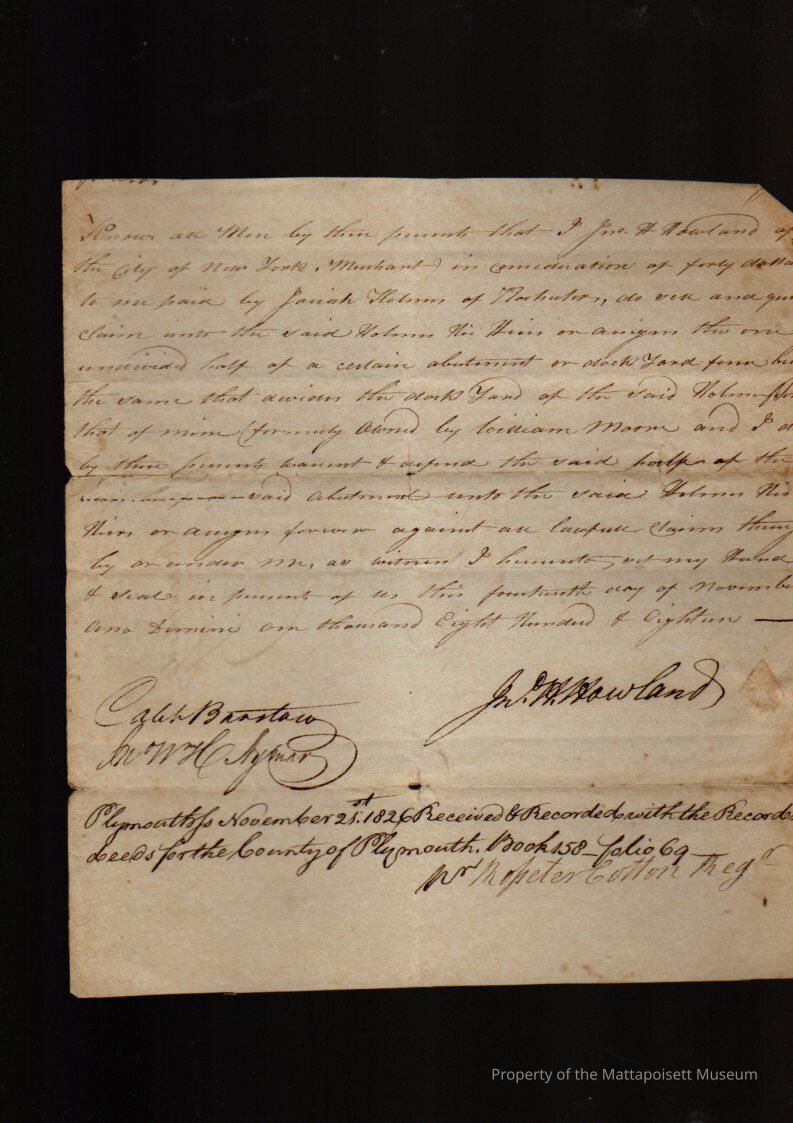 Know all Men by these presents that I Jno. H Howland of
the City of New York, Merchant in consideration of forty dolla
to me paid by Josiah Holmes of Rochester, do sell and qui
claim unto the said Holmes His Heirs or assigns the one
undivided half of a certain abutment or dock Yard
the same that divides the dock Yard of the said Holmes
that of mine (formerly Owned by William Moore and I d
by these presents warrent & defend the said half of the
said abutment unto the said Holmes His
Heirs or assigns forever against all lawfull Claims
by or under me, as witness I hereunto set my Hand
& seal in presents of us this fourteenth day of Novembe
Ano Domine one thousand Eight Hundred & Eighteen —
Jno. H. Howland
Caleb Barstow
Jno W H Aymar
Plymouth ss November 21.st 1826 Received & Recorded with the Record
deeds for the County of Plymouth. Book 158 folio 69
pr Rosseter Cotton Regr
Property of the Mattapoisett Museum